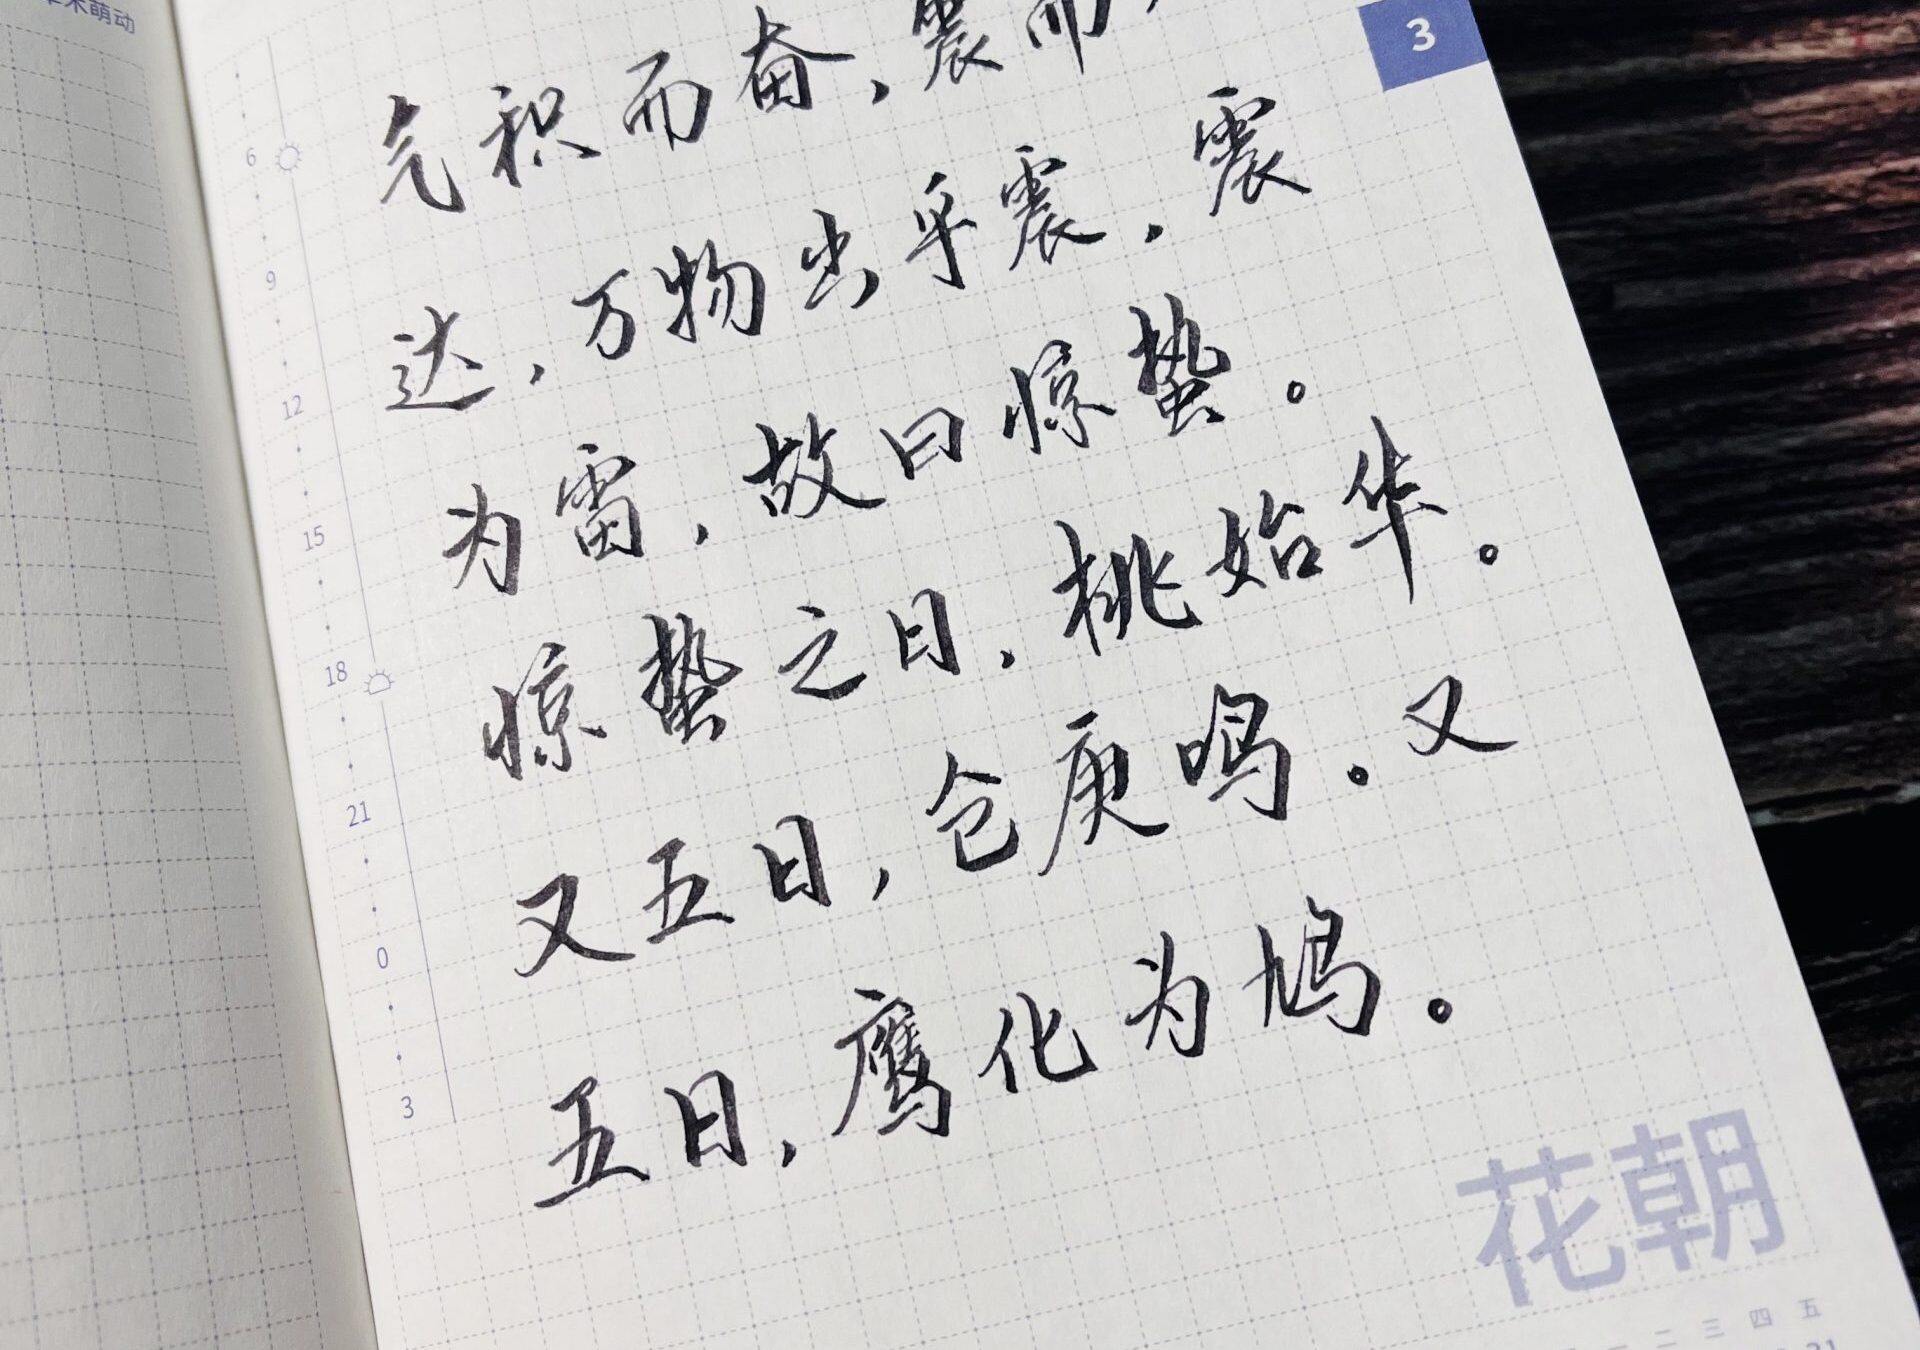 木萌动
3
气积而奋,震而
达,万物出乎震,震
为雷,故曰惊蛰。
惊蛰之日,桃始华。
又五日,仓庚鸣。又
五日,鹰化为鸠。
6
9
12
15
18
21
0
3
花朝
二 三 四 五